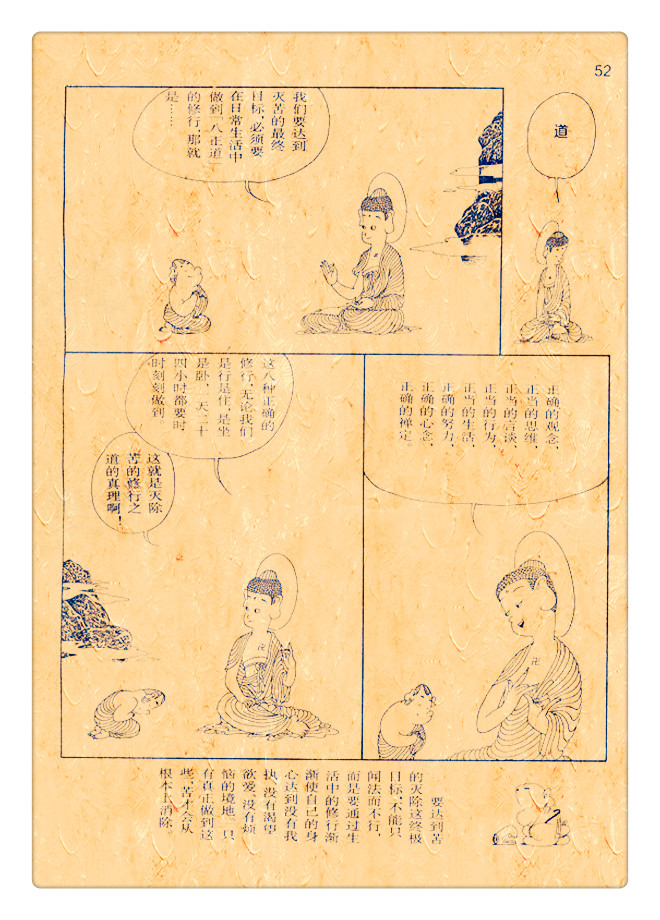 52
道
我们要达到
灭苦的最终
目标,必须要
在日常生活中
做到「八正道」
的修行,那就
是……
正确的观念、
正当的思维、
正当的言谈、
正当的行为、
正当的生活、
正确的努力、
正确的心念、
正确的禅定。
这八种正确的
修行,无论我们
是行是住,是坐
是卧,一天二十
四小时都要时
时刻刻做到。
这就是灭除
苦的修行之
道的真理啊!
要达到苦
的灭除这终极
目标,不能只
闻法而不行,
而是要通过生
活中的修行渐
渐使自己的身
心达到没有我
执、没有渴望
欲爱、没有烦
恼的境地。只
有真正做到这
些,苦才会从
根本上消除